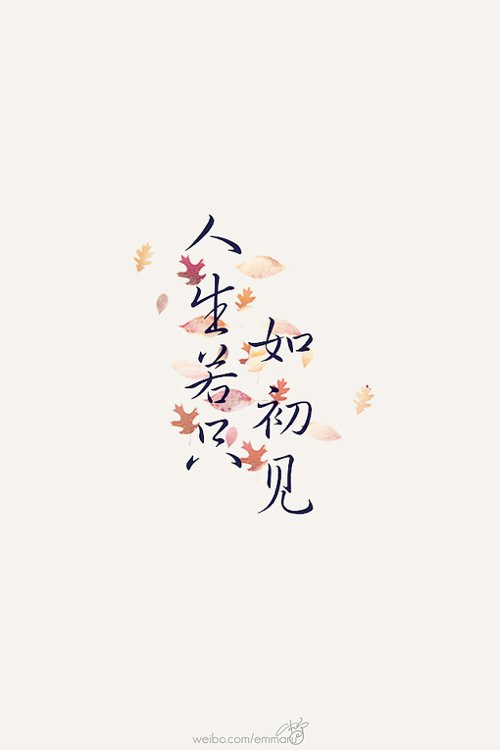 人生若只
如初见
weibo.com/emman